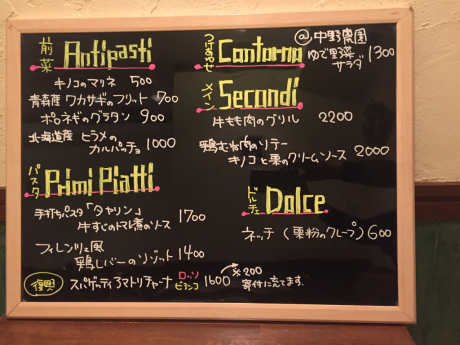 前菜 Antipasti
キノコのマリネ 500
青森産 ワカサギのフリット 700
ポロネギのグラタン 900
北海道産 ヒラメの
カルパッチョ 1000
パスタ Primi Piatti
手打ちパスタ「タヤリン」
牛すじのトマト煮のソース 1700
フィレンツェ風
鶏レバーのリゾット 1400
復興 スパゲッティアマトリチャーナ ロッソ
ビアンコ 1600 ※200
寄付に充てます。
つけあわせ Contorno
@中野農園
ゆで野菜
サラダ 1300
メイン Secondi
牛もも肉のグリル 2200
鶏むね肉のソテー
キノコと栗のクリームソース 2000
ドルチェ Dolce
ネッチ(栗粉のクレープ) 600